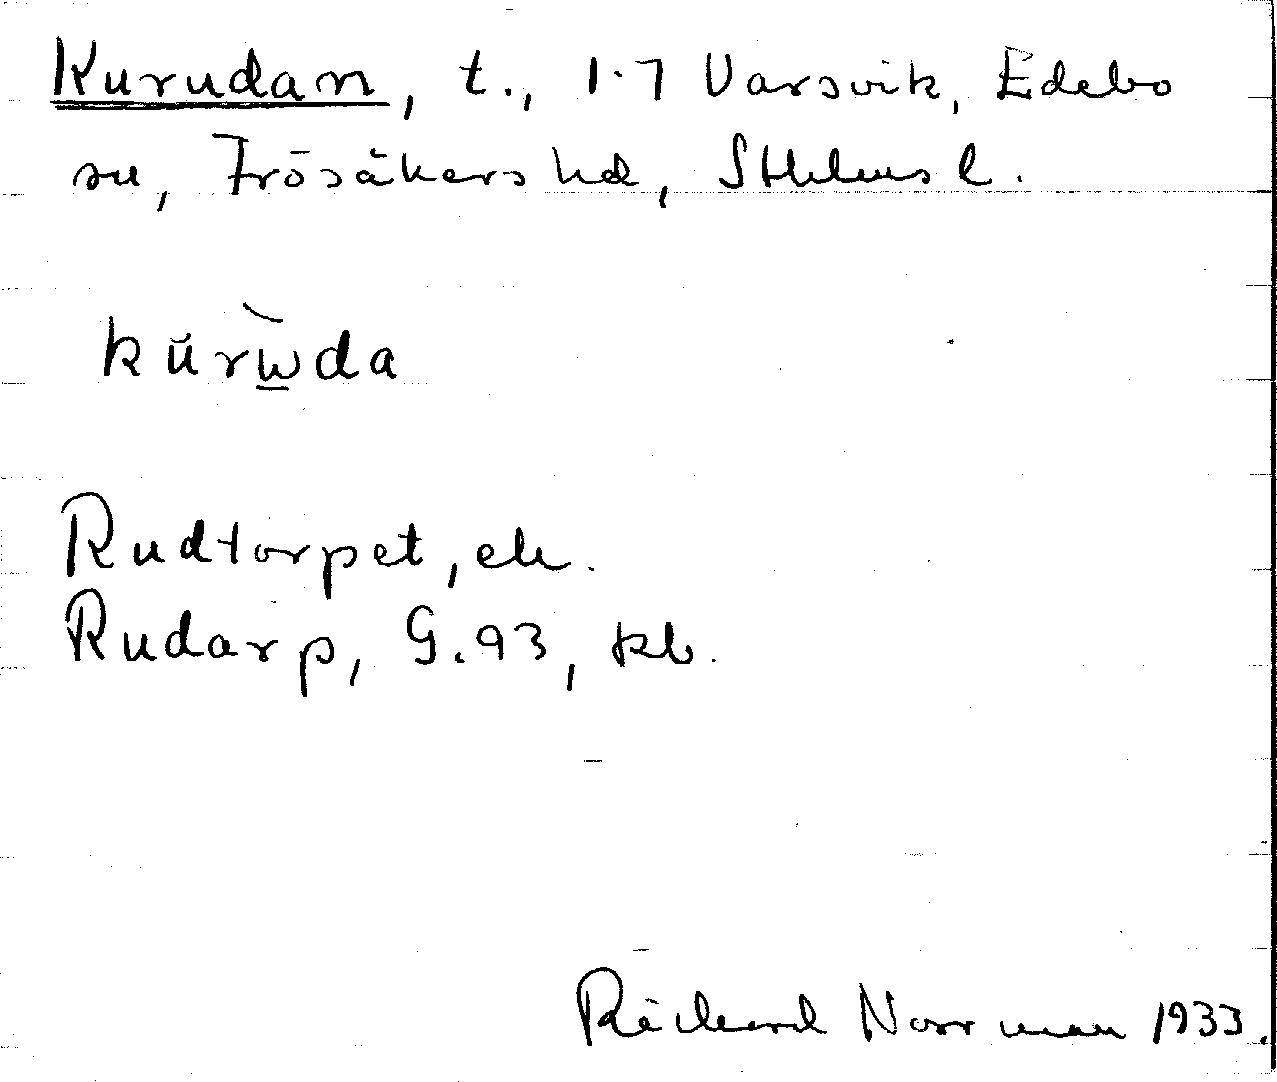 Kurudan, t., 1·7 Varsvik, Edebo
sn, Frösåkers hd, Sthlms l.
kŭrùda
Rudtorpet, ek.
Rudarp, G.93, kb.
Richard Norrman 1933.